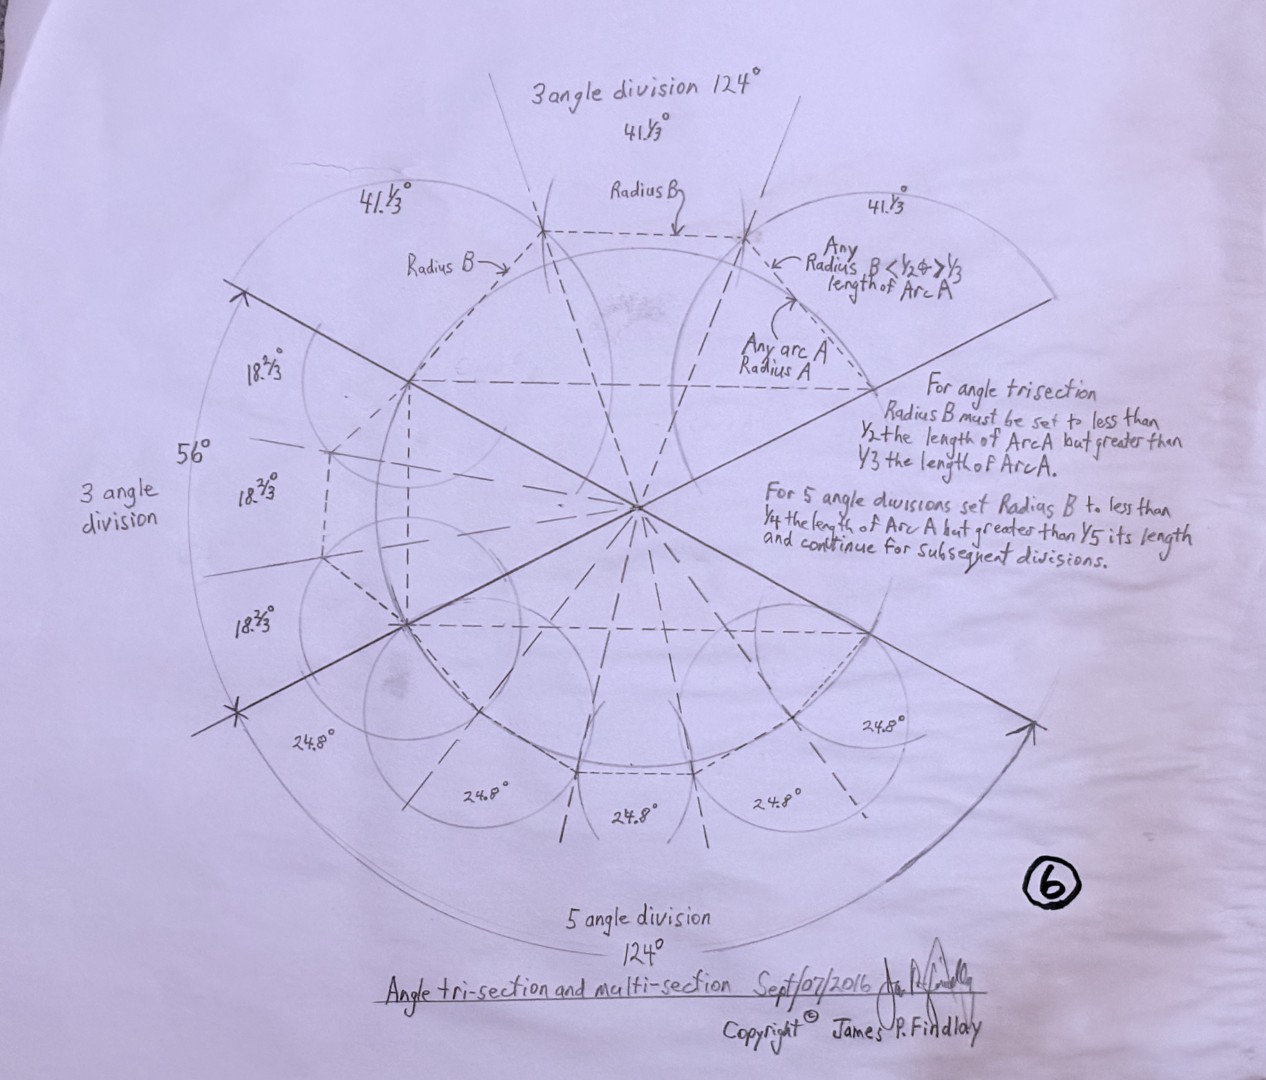 3 angle division 124°
41.⅓°
Radius B
41.⅓°
41.⅓°
Radius B
Any
Radius B <½ & >⅓
length of Arc A
Any arc A
Radius A
18.⅔°
56°
3 angle
division
18.⅔°
18.⅔°
For angle trisection
Radius B must be set to less than
½ the length of Arc A but greater than
⅓ the length of Arc A.
For 5 angle divisions set Radius B to less than
¼ the length of Arc A but greater than ⅕ its length
and continue for subsequent divisions.
24.8°
24.8°
24.8°
24.8°
24.8°
6
5 angle division
124°
Angle tri-section and multi-section Sept/07/2016
Copyright © James P. Findlay